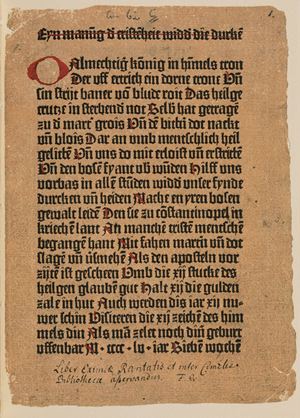 Eyn manūg d̄ cristēheit widd̄ die durkē
O Almechtig könig in himels tron
Der uff ertrich ein dorne crone Vn̄
sin strijt baner vō blude roit Das heilge
crutze in sterbend not Selb̄ hat getragē
zu d̄ mart̄ grois Vn̄ dē bittn̄ dot nackt
vn̄ blois Dar an vmb menschlich heil
gelittē Vn̄ vns do mit erloist vn̄ erstrittē
Vn̄ den bosē fyant vb̄ wūden Hilff vns
vorbas in allē stūden widd̄ vnser fynde
durcken vn̄ heiden Mache en yren bosen
gewalt leidē Den sie zu cōstantinopel in
kriechē lant An manchē tristē menschē
begangē hant Mit fahen martn̄ vn̄ dot
slagē vn̄ v̄smehē Als den aposteln vor
zijtē ist gescheen Vmb die xij stucke des
heiligen glaubē gut Halt xij die gulden
zale in hut Auch werden dis iar xij nu-
wer schin Visiteren die xij zeichē des hi-
mels din Als mā zelet noch din̄ geburt
uffenbar M · cccc · lv · iar Sieben wochē
Liber Eximiæ Raritatis et inter Cimelia
Bibliothecæ asservandus.